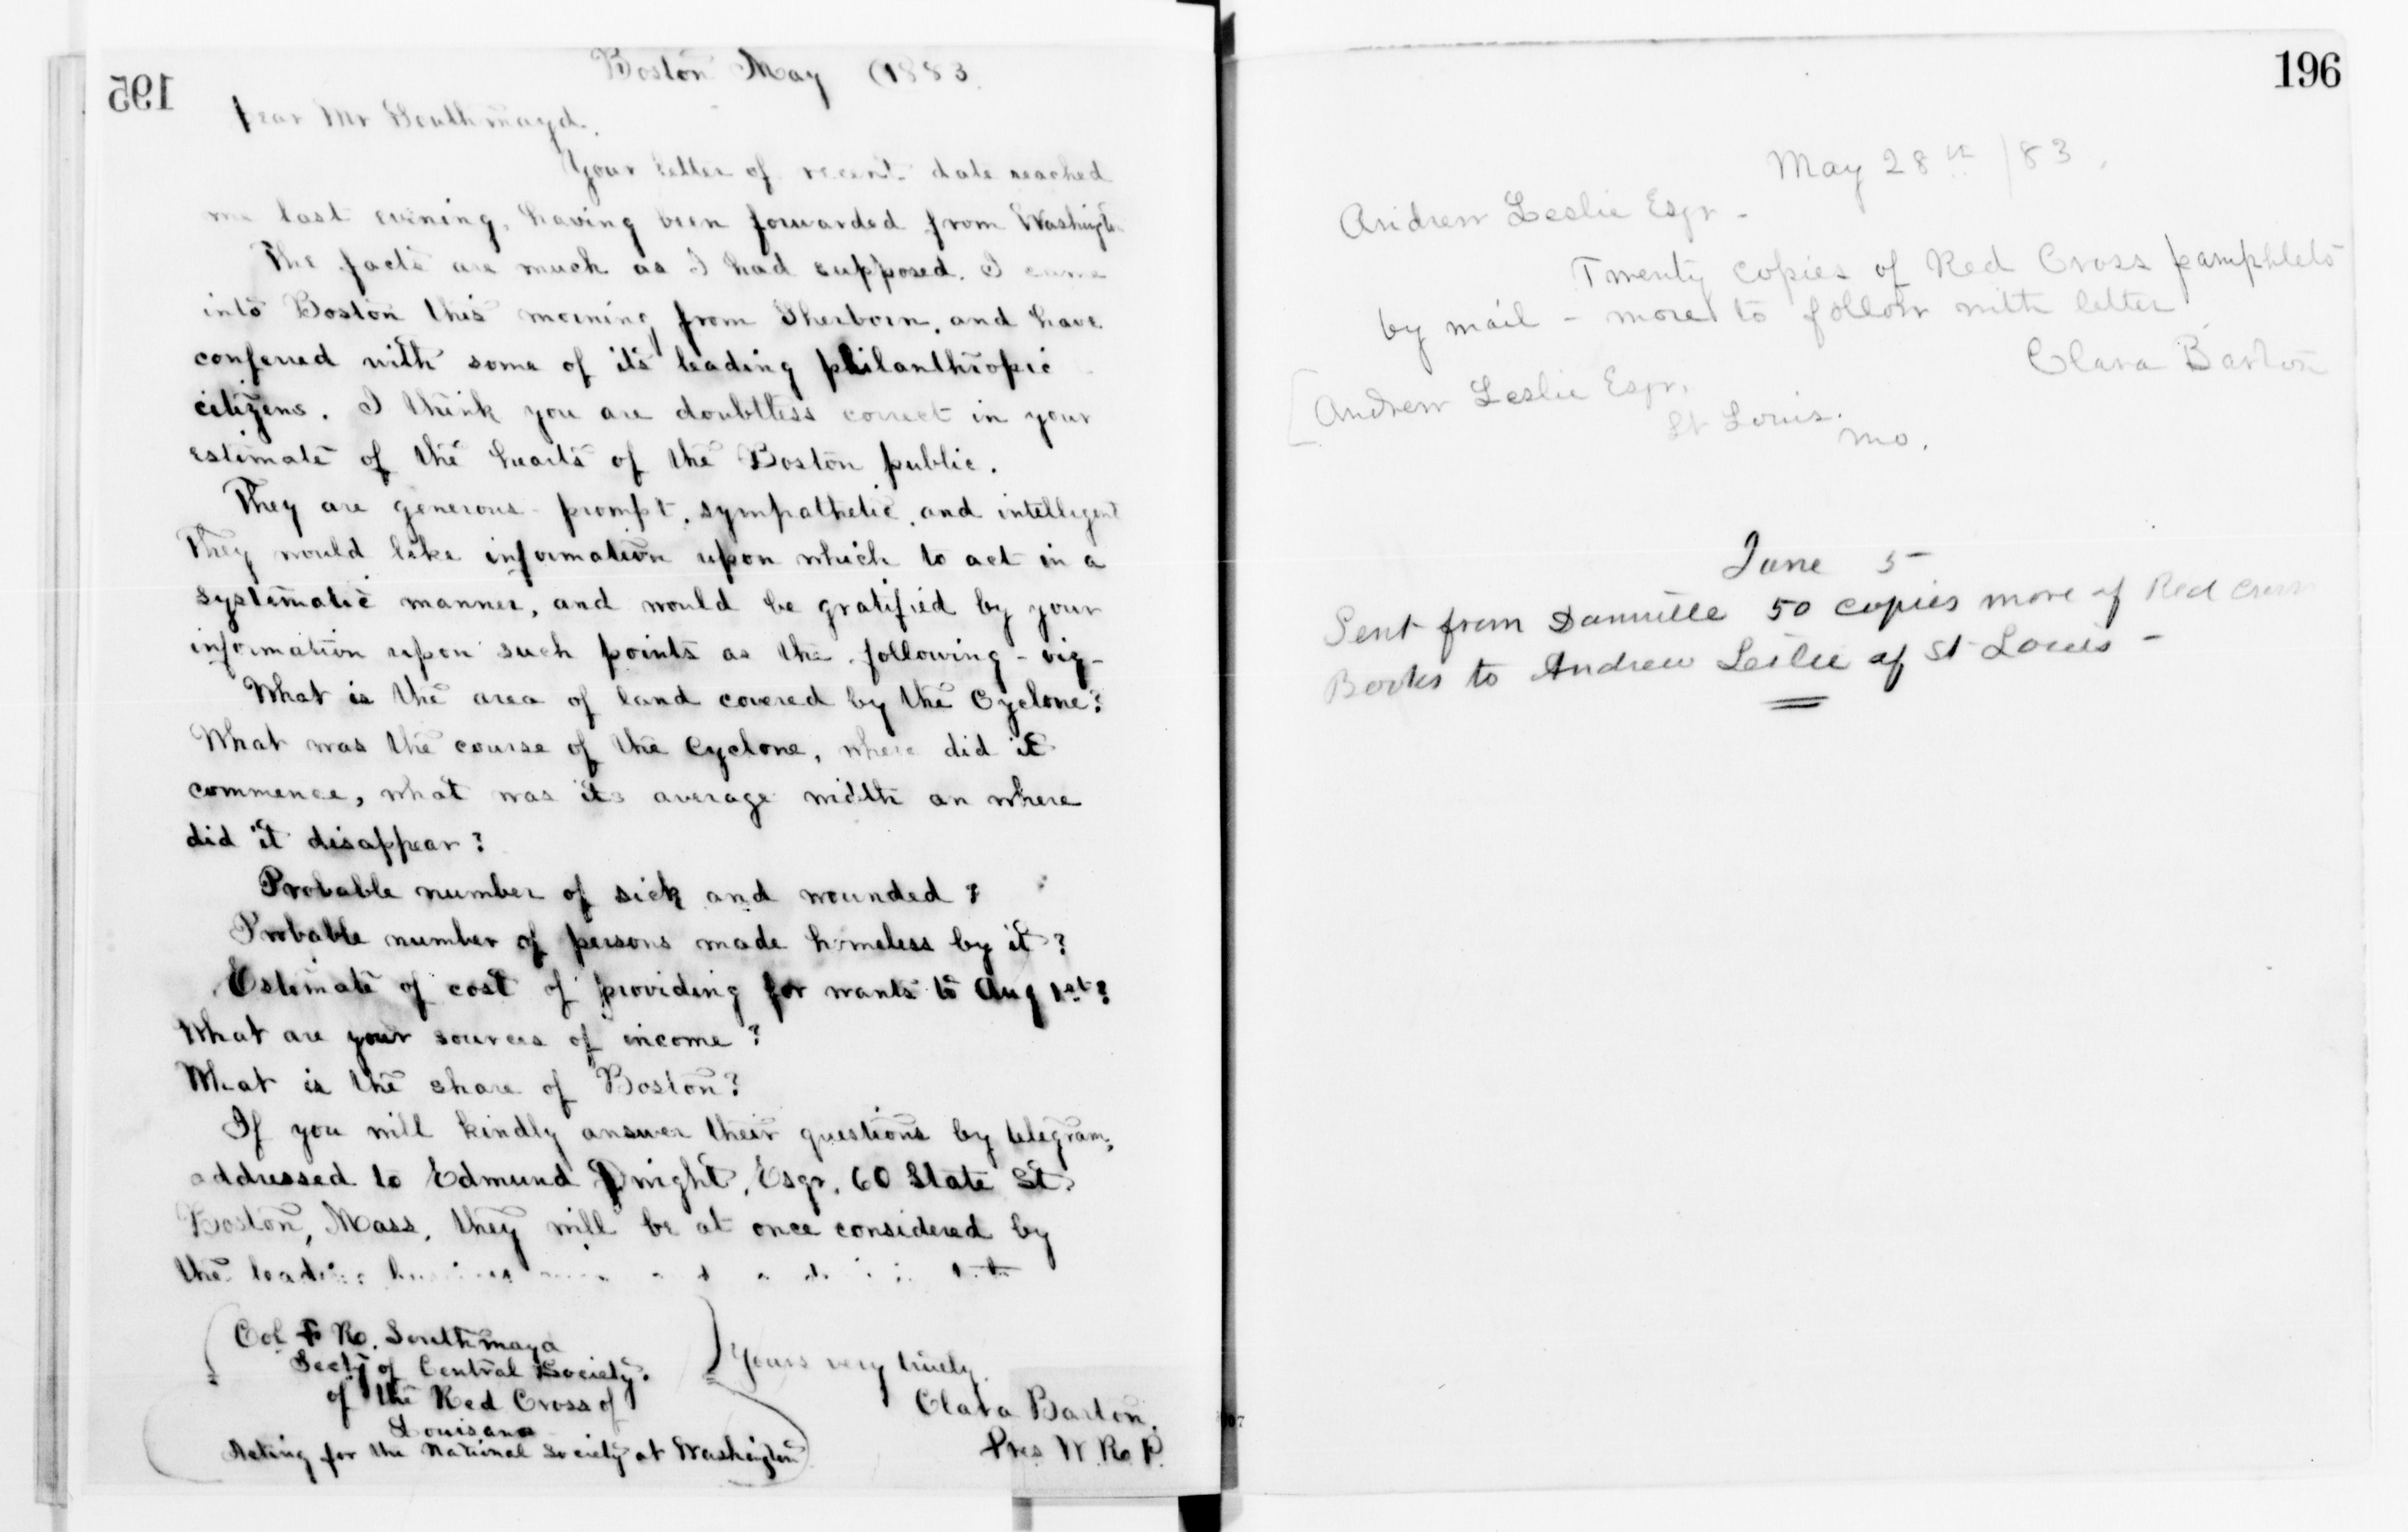 195
Boston May (1883.
Dear Mr Southmayd.
Your letter of recent date reached
me last evening, having been forwarded from Washington
The facts are much as I had supposed. I came
into Boston this morning from Sherborn, and have
conferred with some of its leading philanthropic
citizens. I think you are doubtless correct in your
estimate of the hearts of the Boston public.
They are generous - prompt, sympathetic, and intelligent
They would like information upon which to act in a
systematic manner, and would be gratified by your
information upon such points as the following - viz -
What is the area of land covered by the Cyclone?
What was the course of the Cyclone, where did it
commence, what was its average width an where
did it disappear?
Probable number of sick and wounded?
Probable number of persons made homeless by it?
Estimate of cost of providing for wants to Aug 1st?
What are your sources of income?
What is the share of Boston?
If you will kindly answer their questions by telegram,
addressed to Edmund Dwight, Esqr. 60 State St.
Boston, Mass, they will be at once considered by
the leading business
Col F R. Southmayd
Secty of Central Society.
of the Red Cross of
Louisana
Acting for the National Society at Washington
Yours very truely.
Clara Barton.
Pres W. R. P.
196
May 28th /83.
Andrew Leslie Esqr -
Twenty copies of Red Cross pamphlets
by mail - more to follow with letter
Clara Barton
[Andrew Leslie Esqr.
St Louis.
Mo.
June 5-
Sent from Dansville 50 copies more of Red Cross
Books to Andrew Leslie of St Louis -